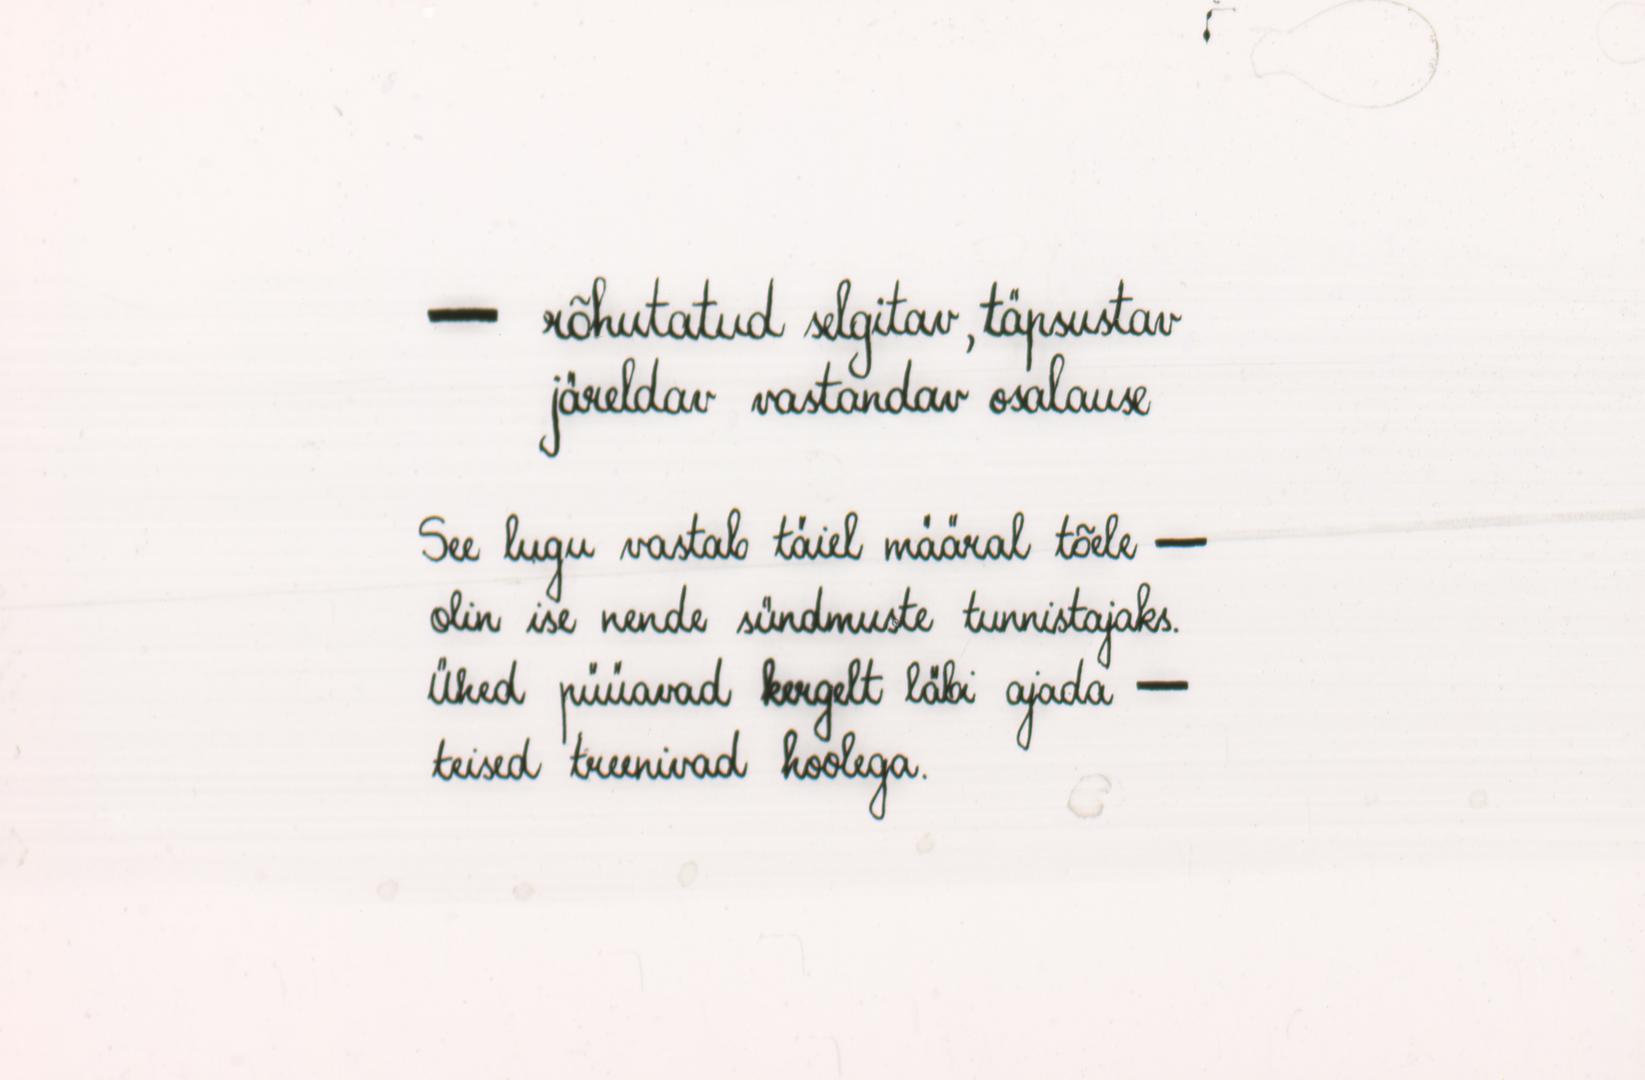 — rõhutatud selgitav, täpsustav
järeldav vastandav osalause
See lugu vastab täiel määral tõele —
olin ise nende sündmuste tunnistajaks.
Ühed püüavad kergelt läbi ajada —
teised treenivad hoolega.